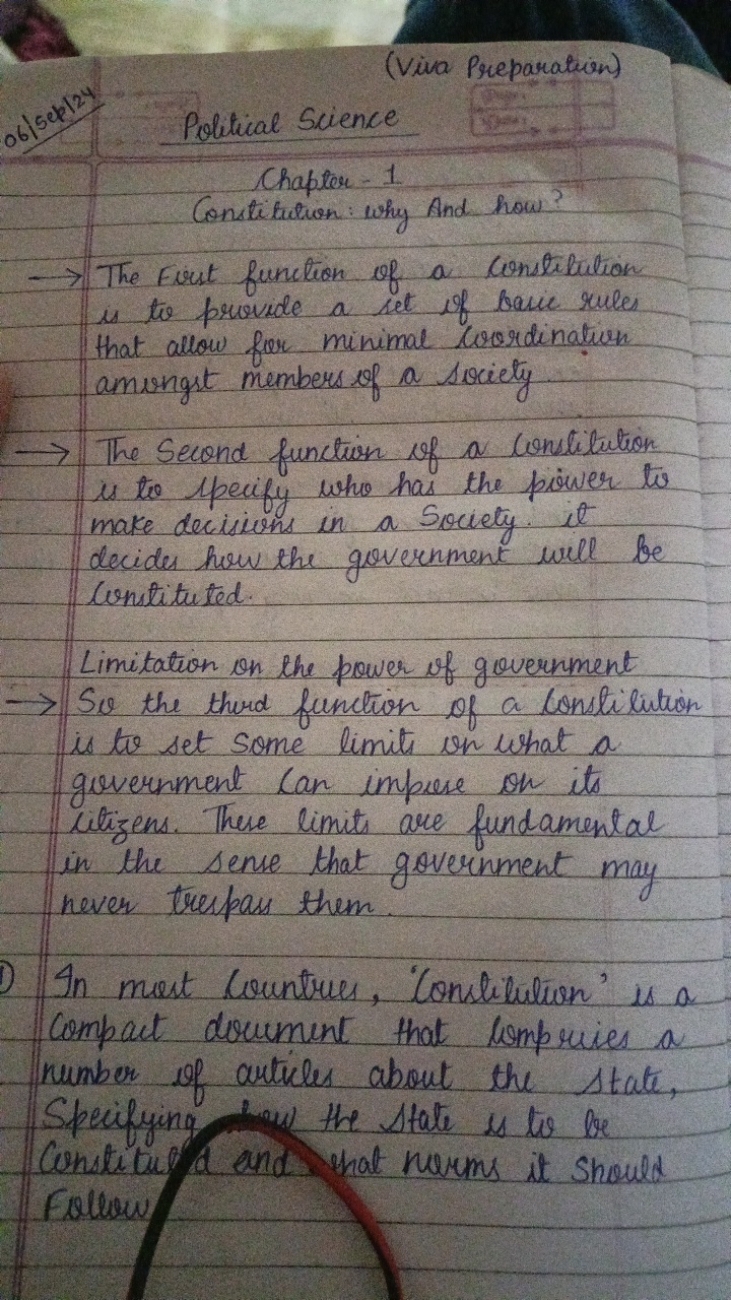 (Viva Preparation)
06/Sep/24
Political Science
Chapter - 1
Constitution: why And how?
→ The First function of a Constitution
is to provide a set of basic rules
that allow for minimal Coordination
amongst members of a society
→ The Second function of a Constitution
is to specify who has the power to
make decisions in a Society. it
decides how the government will be
Constituted.
Limitation on the power of government
→ So the third function of a Constitution
is to set Some limits on what a
government Can impose on its
citizens. These limits are fundamental
in the sense that government may
never trespass them.
In most Countries, 'Constitution' is a
Compact document that Comprises a
number of articles about the State,
Specifying how the State is to be
Constituted and what norms it Should
Follow